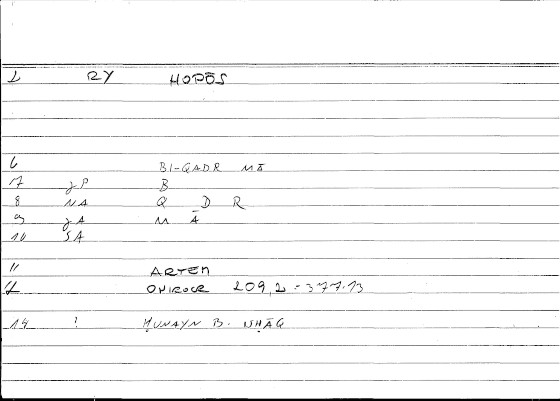 1 RY HOPŌS
6 BI-QADR MĀ
7 JP B
8 NA Q D R
9 JA M Ā
10 SA
11 ARTEM
12 ONIROCR 209,2 = 377.13
14 ? ḤUNAYN B. ISḤĀQ